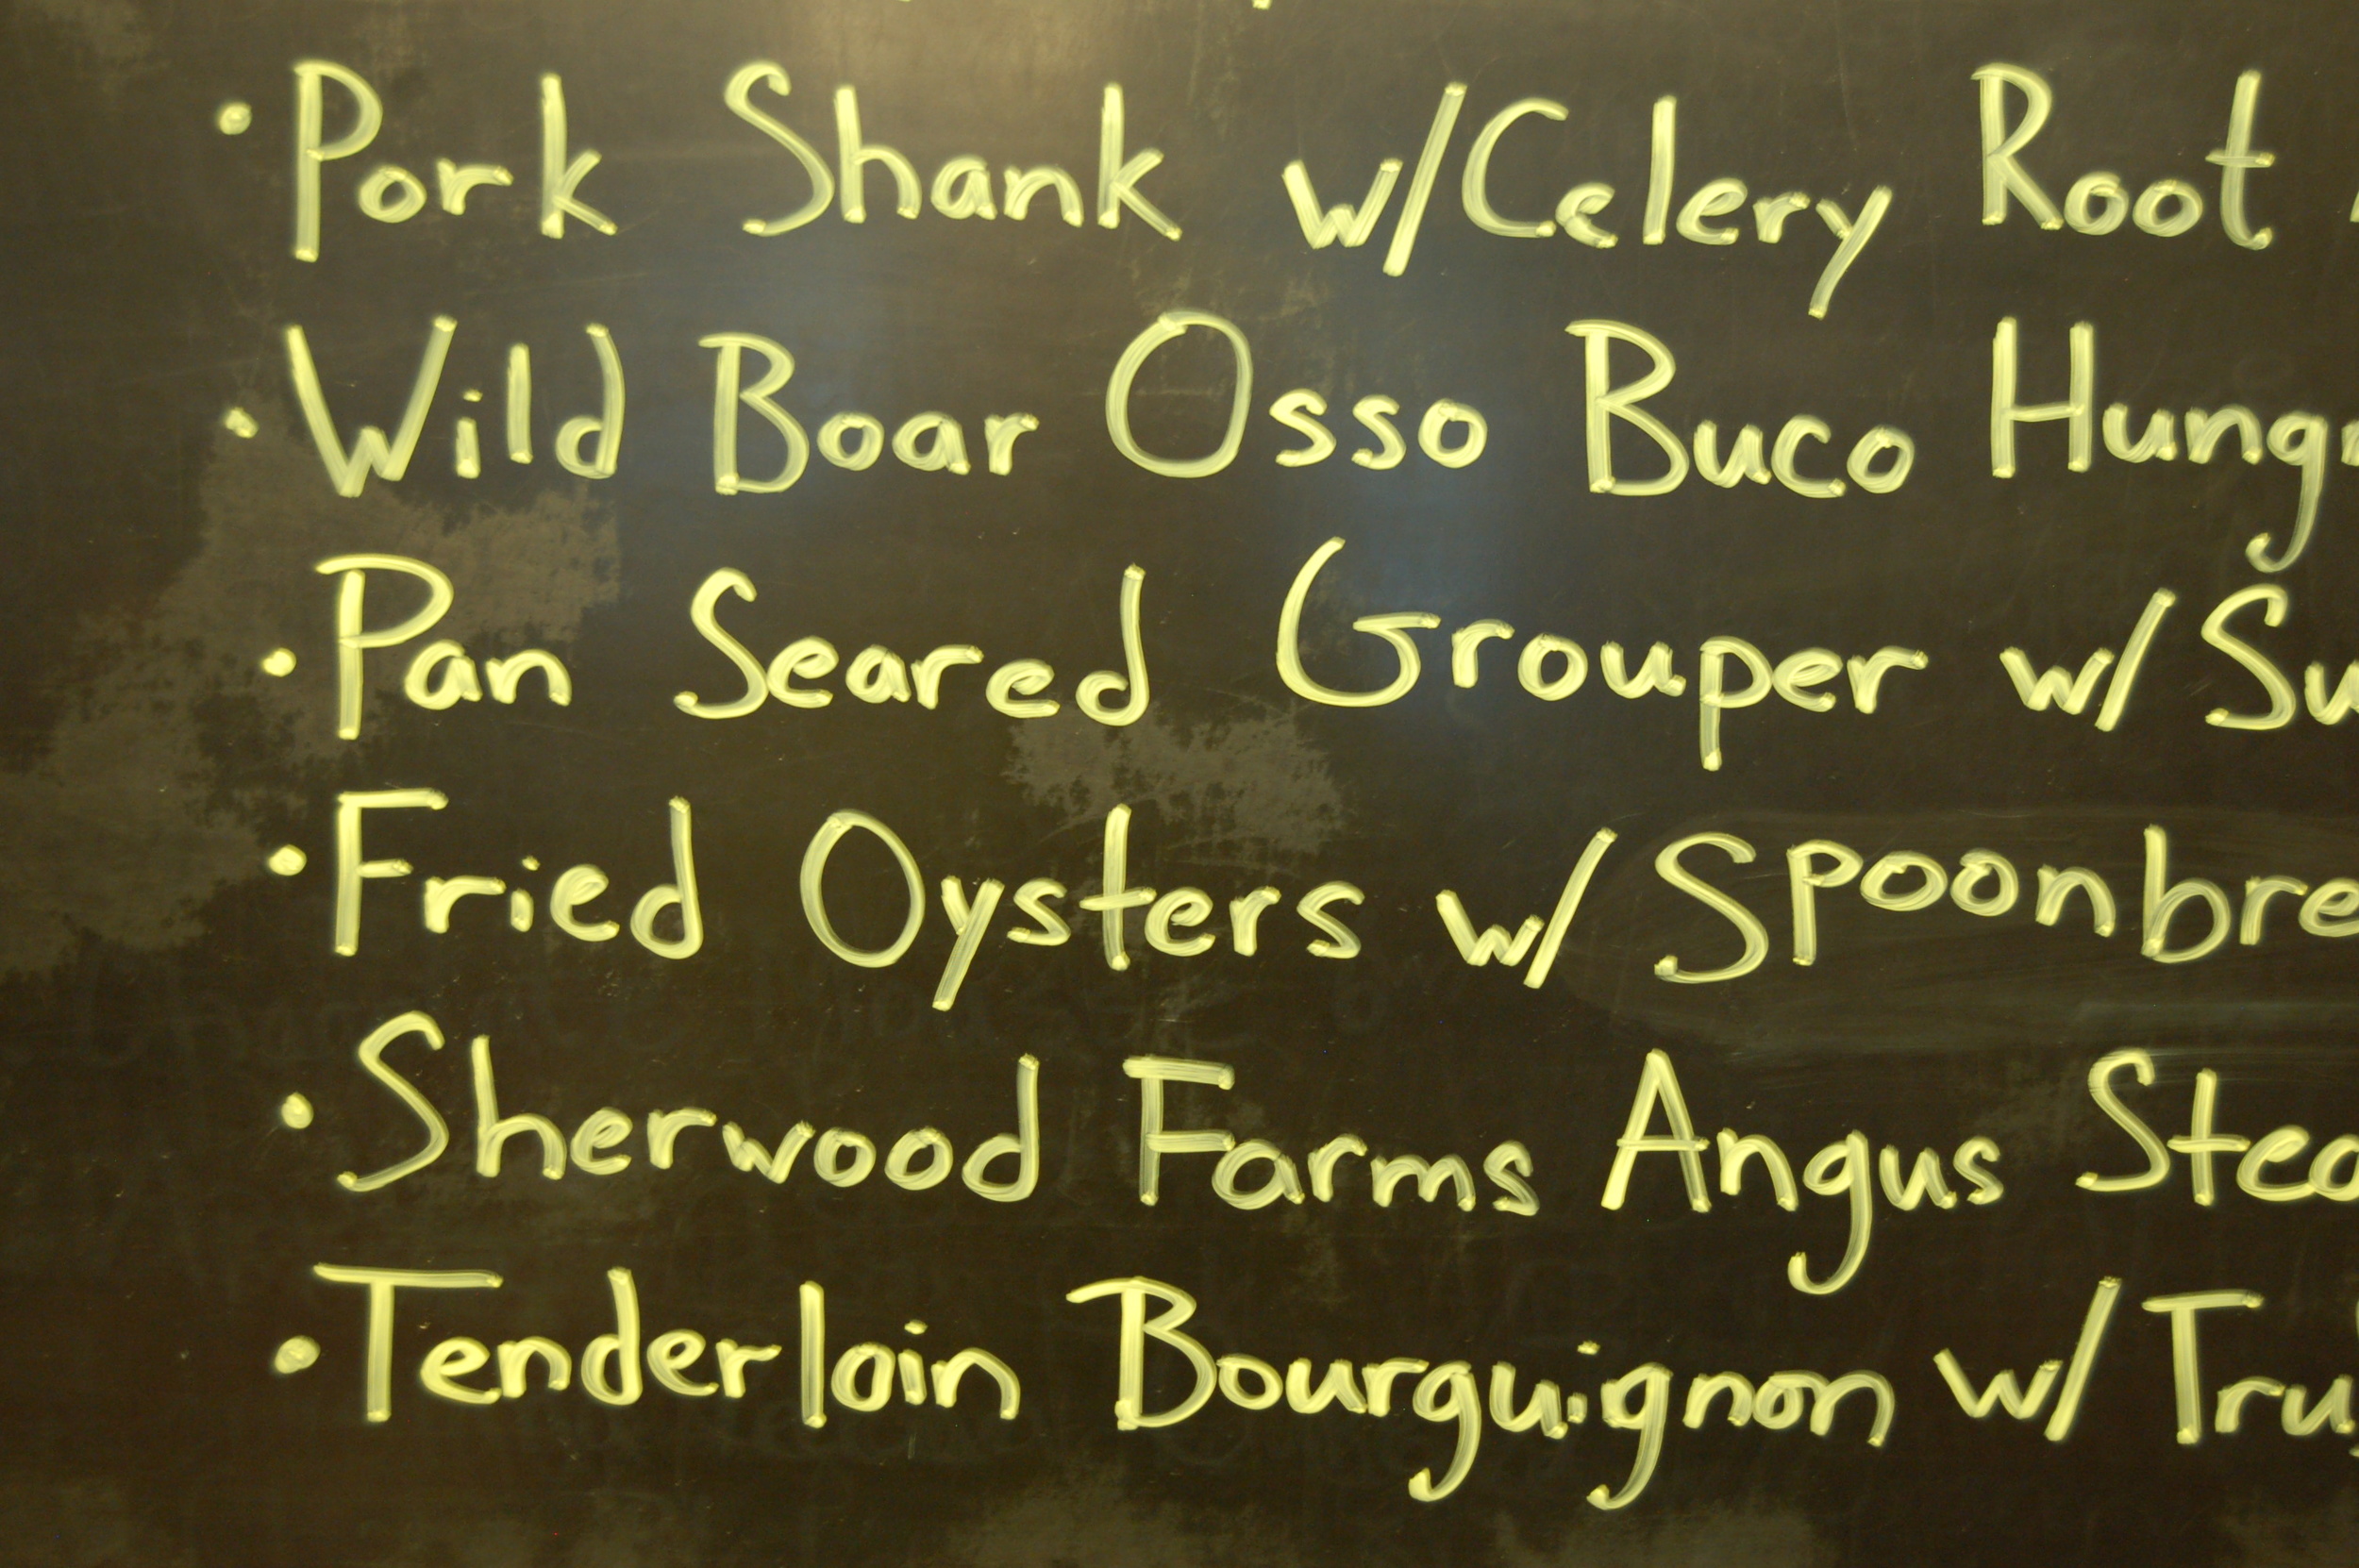 • Pork Shank w/Celery Root
• Wild Boar Osso Buco Hungr
• Pan Seared Grouper w/ Sw
• Fried Oysters w/ Spoonbre
• Sherwood Farms Angus Stea
• Tenderloin Bourguignon w/ Tru